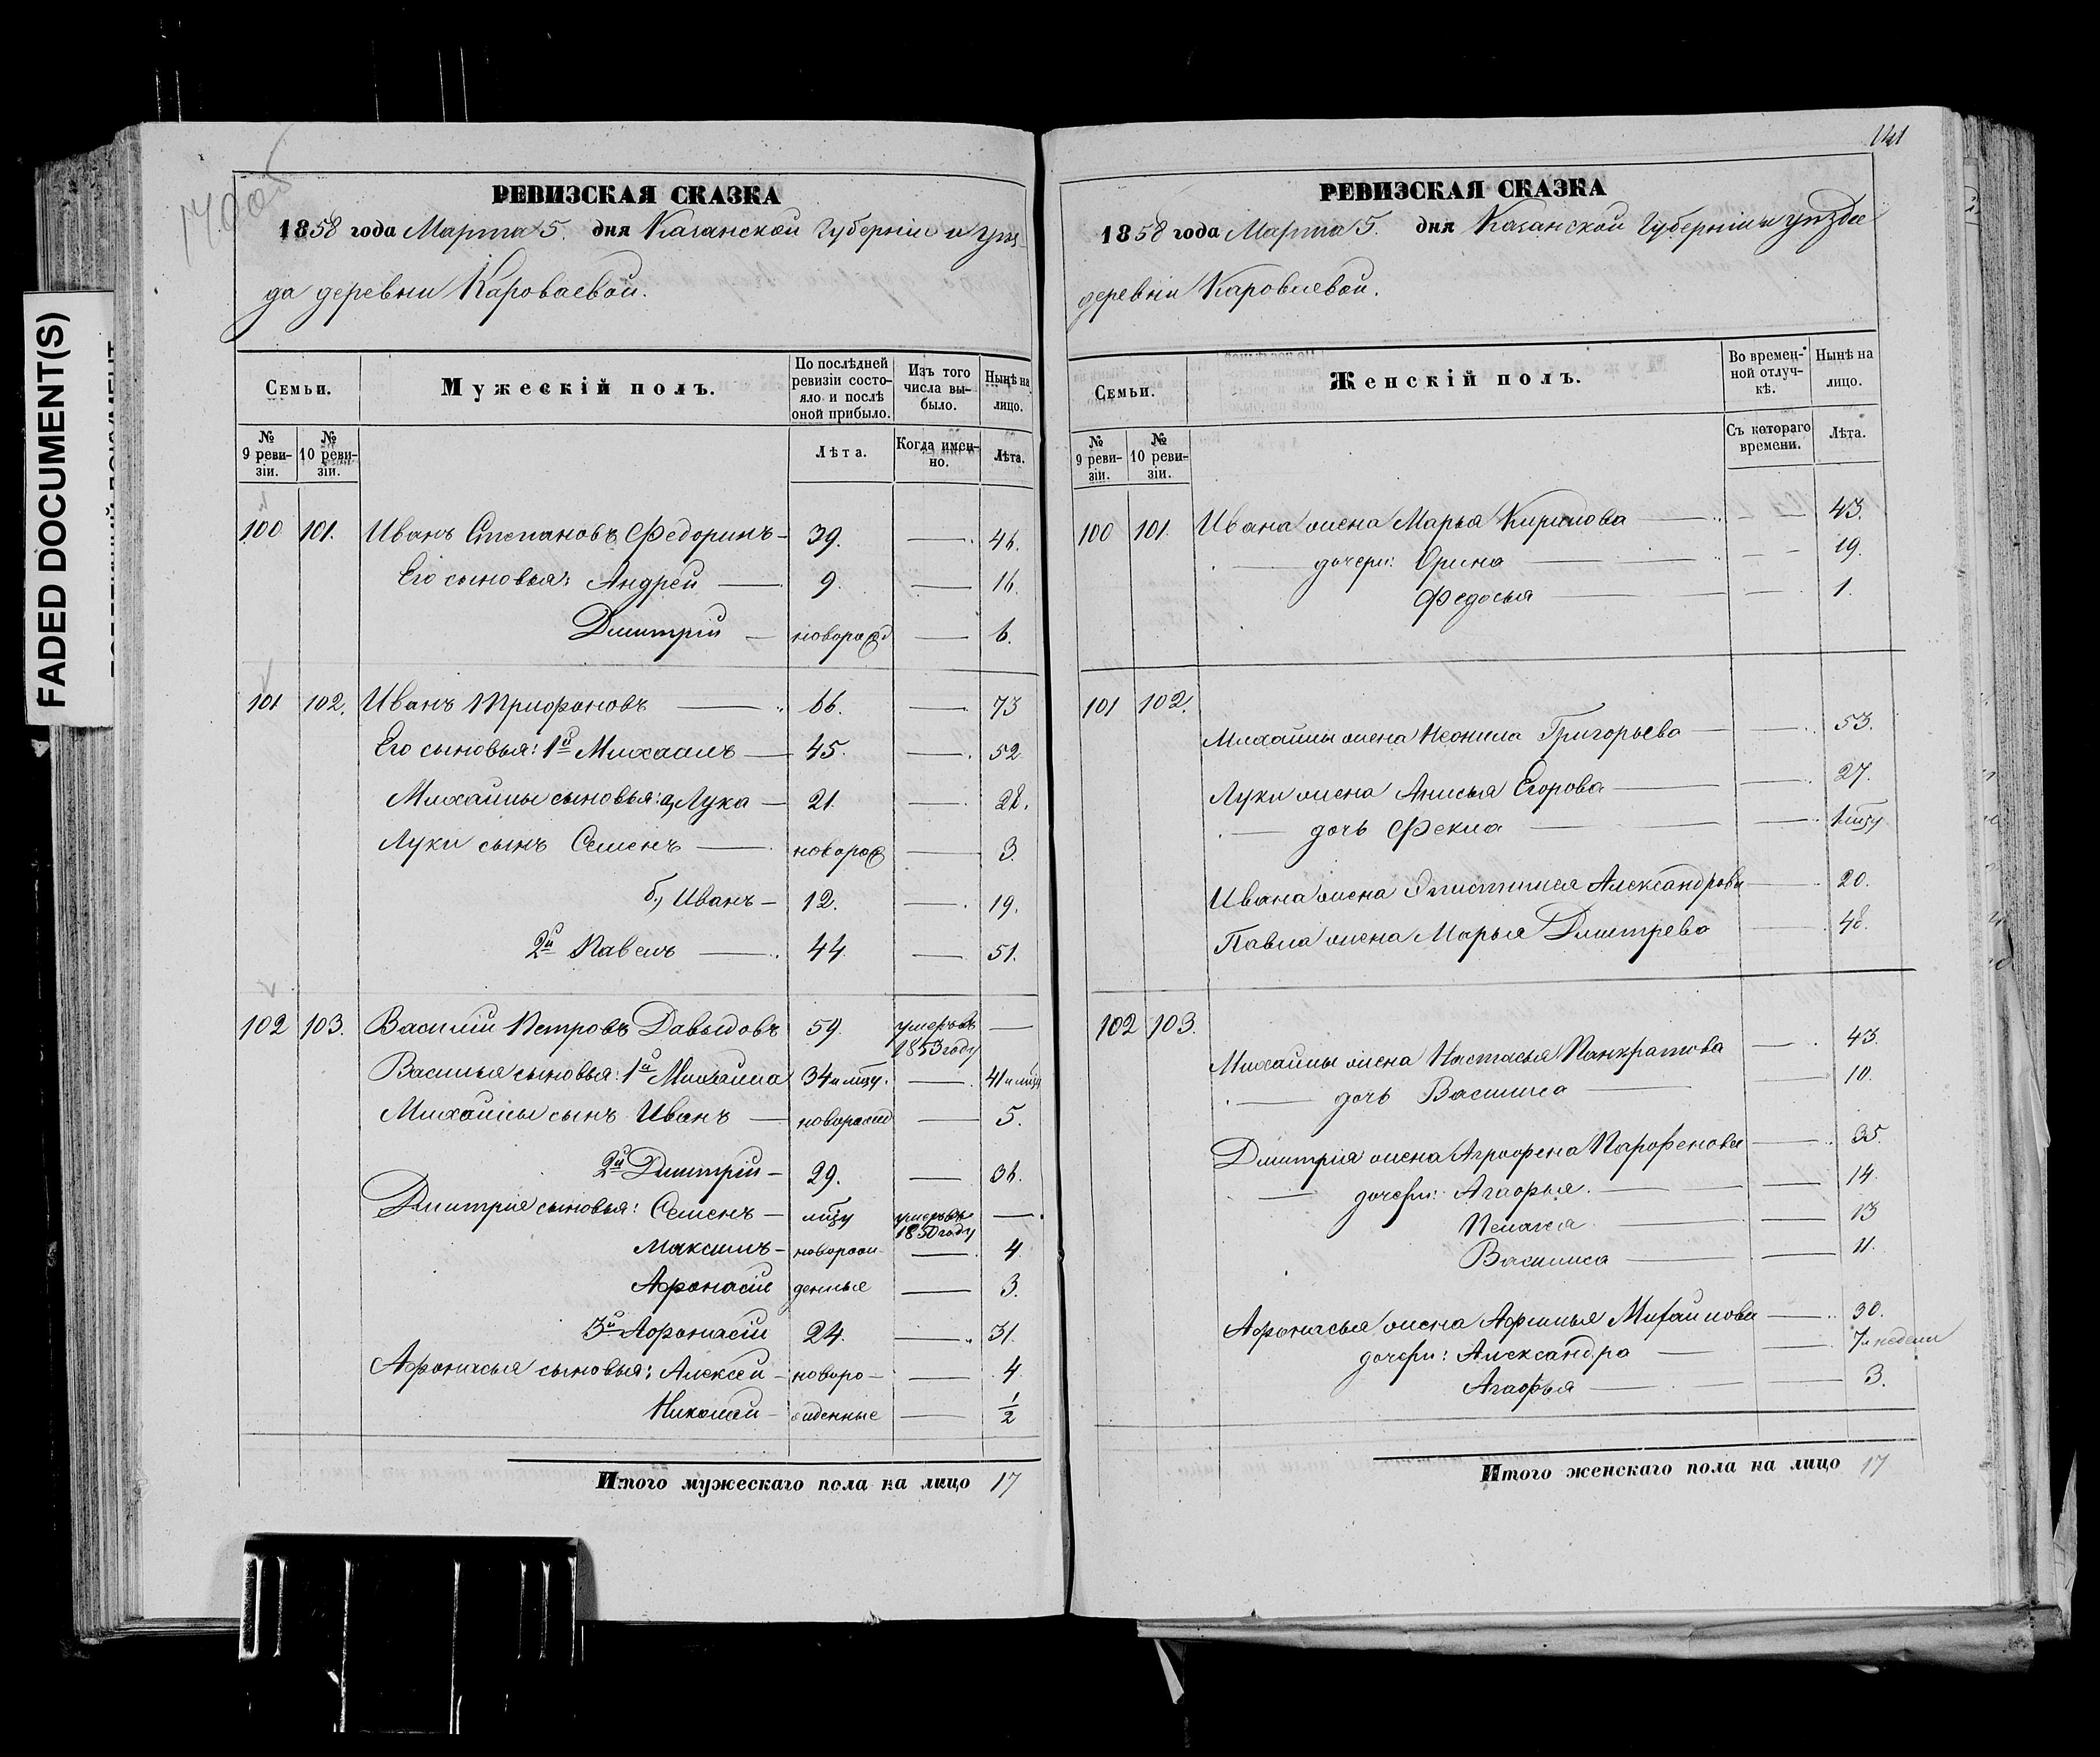 FADED DOCUMENT(S)
РЕВИЗСКАЯ СКАЗКА
1858 года Марта 5. дня Казанской Губерніи и уѣз-
да деревни Кароваевой.
Семьи.
Мужескій полъ.
По послѣдней ревизіи состояло и послѣ оной прибыло.
Изъ того числа выбыло.
Нынѣ на лицо.
№ 9 ревизіи.
№ 10 ревизіи.
Лѣта.
Когда именно.
Лѣта.
100 101. Иванъ Степановъ Федоринъ — 39. — 46.
Его сыновья: Андрей — 9. — 16.
Дмитрій — новорожд — 6.
101 102. Иванъ Трифоновъ — 66. — 73
Его сыновья: 1й Михаилъ — 45. — 52
Михайлы сыновья: а, Лука — 21. — 28.
Луки сынъ Семенъ — новорож — 3.
б, Иванъ — 12. — 19.
2й Павелъ — 44 — 51.
102 103. Василій Петровъ Давыдовъ 59. умеръ въ 1853 году —
Василья сыновья: 1й Михайла 34 и мцу. — 41 и мцу
Михайлы сынъ Иванъ — новорожд — 5.
2й Дмитрій — 29. — 36.
Дмитрія сыновья: Семенъ — мцу умеръ въ 1850 году —
Максимъ — новорож- — 4
Афонасій денные — 3.
3й Афонасій 24. — 31.
Афонасья сыновья: Алексей — новоро- — 4
Николай — жденные — 1/2
Итого мужескаго пола на лицо 17
141
РЕВИЗСКАЯ СКАЗКА
1858 года Марта 5. дня Казанской Губерніи и уѣзда
деревни Кароваевой.
Семьи.
Женскій полъ.
Во временной отлучкѣ.
Нынѣ на лицо.
№ 9 ревизіи.
№ 10 ревизіи.
Съ котораго времени.
Лѣта.
100 101. Ивана жена Марья Кирилова — — 43.
дочери: Орина — — 19.
Федосья — — 1.
101 102.
Михайлы жена Неонила Григорьева — — 53.
Луки жена Анисья Егорова — — 27.
— дочь Фекла — — 1 мцу
Ивана жена Епистимея Александрова — 20.
Павла жена Марья Дмитрева — 48.
102 103.
Михайлы жена Настасья Панкратова — 43.
— дочь Василиса — — 10.
Дмитрія жена Аграфена Парфенова — 35.
— дочери: Агафья. — — 14.
Пелагея — — 13
Василиса — — 11.
Афонасья жена Афимья Михайлова — 30.
дочери: Александра — — 7 недели
Агафья — — 3.
Итого женскаго пола на лицо 17